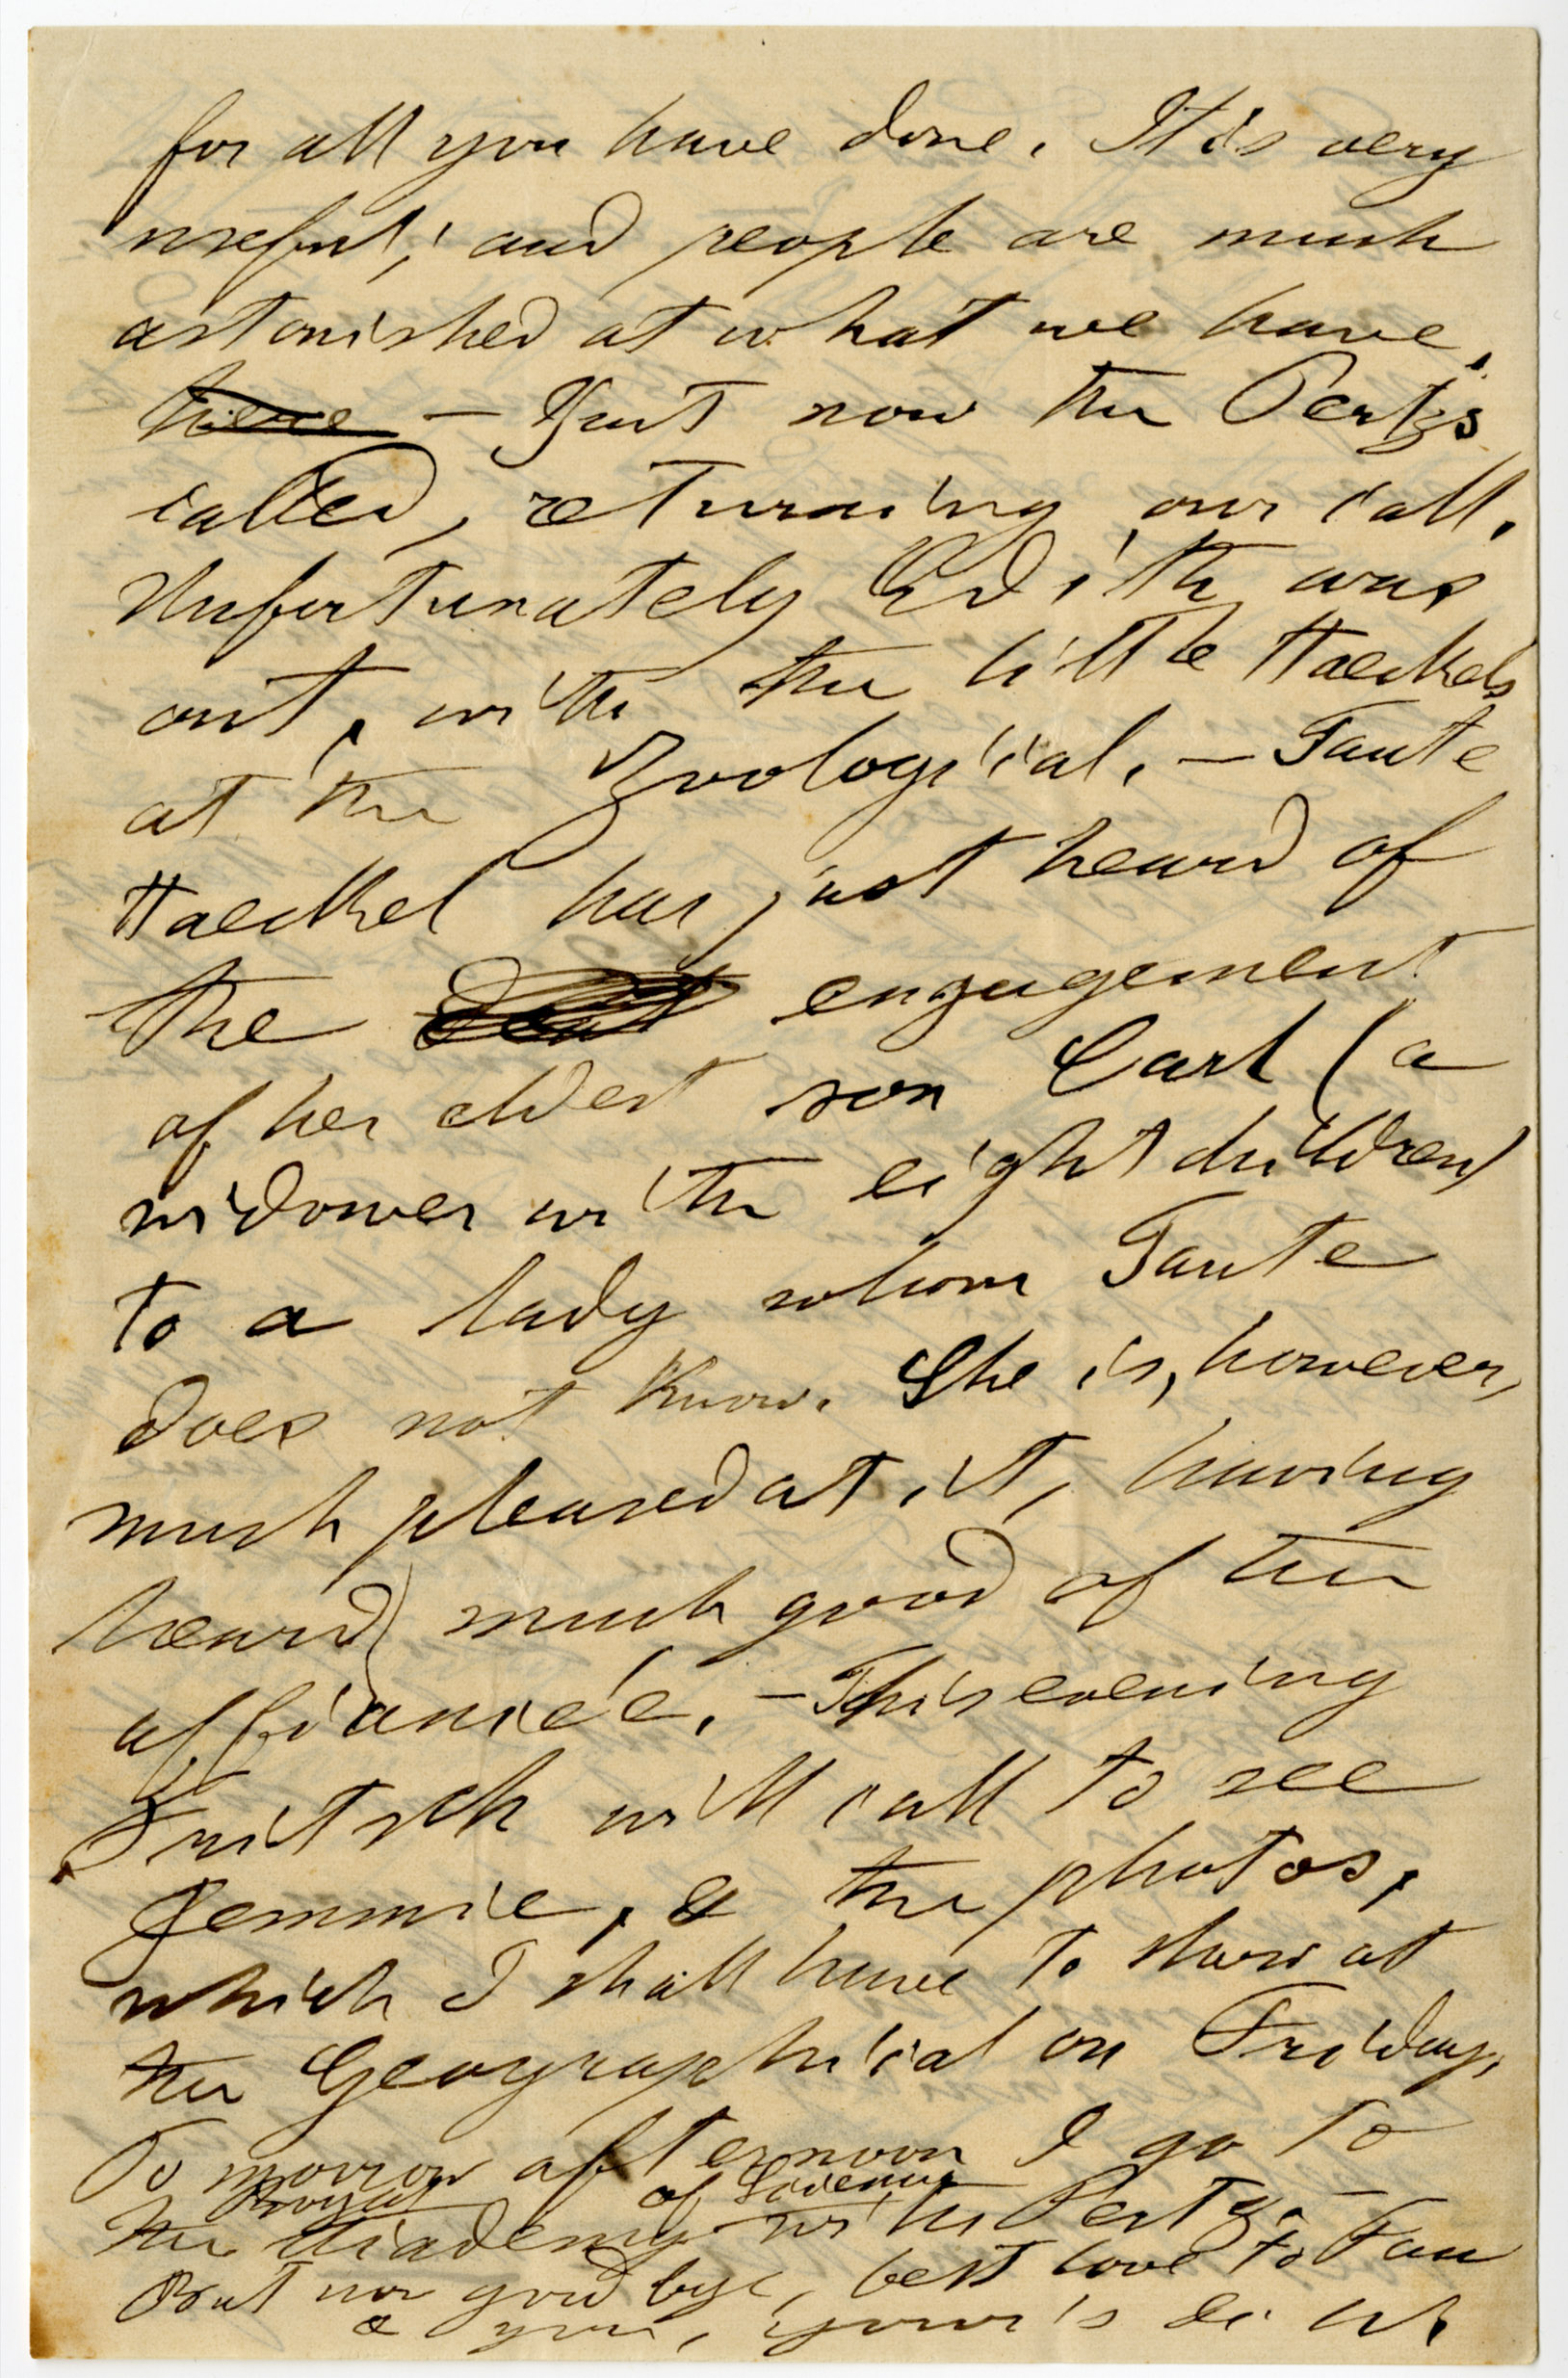 for all you have done. It is very
useful; and people are much
astonished at what we have.
here — Just now the Pertzs
called, returning our call.
Unfortunately Edith was
out, with the little Haeckels
at the Zoological. — Tante
Haeckel has just heard of
the engagement
of her eldest son Carl (a
widower with eight children)
to a lady whom Tante
does not know. She is, however,
much pleased at it, having
heard much good of the
affiancée. — This evening
Fritsch will call to see
Jemmie, & the photos,
which I shall have to show at
the Geographical on Friday.
To morrow afternoon I go to
the Royal Academy of Science with Pertz. —
But now good bye, best love to Fan
& you, your's